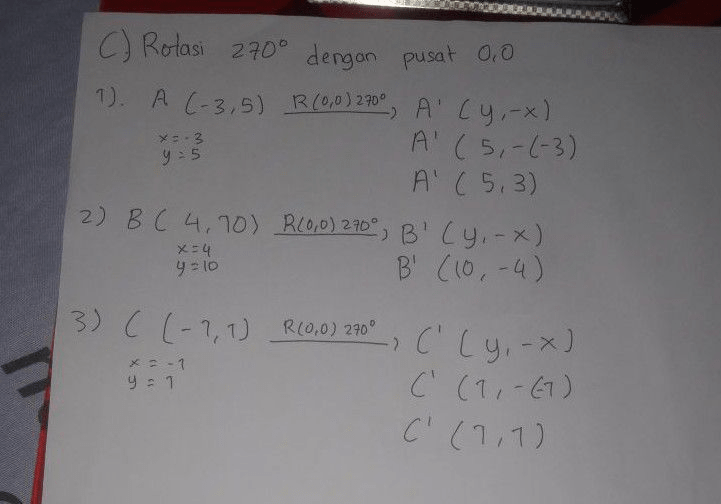 C) Rotasi 270° dengan pusat 0,0
1). A (-3,5) R(0,0) 270° A' (y,-x)
x=-3
y=5
A' (5,-(-3)
A' (5,3)
2) B (4,10) R(0,0) 270° B' (y,-x)
x=4
y=10
B' (10,-4)
3) C (-1,1) R(0,0) 270° C' (y,-x)
x = -1
y = 1
C' (1,-(-1)
C' (1,1)